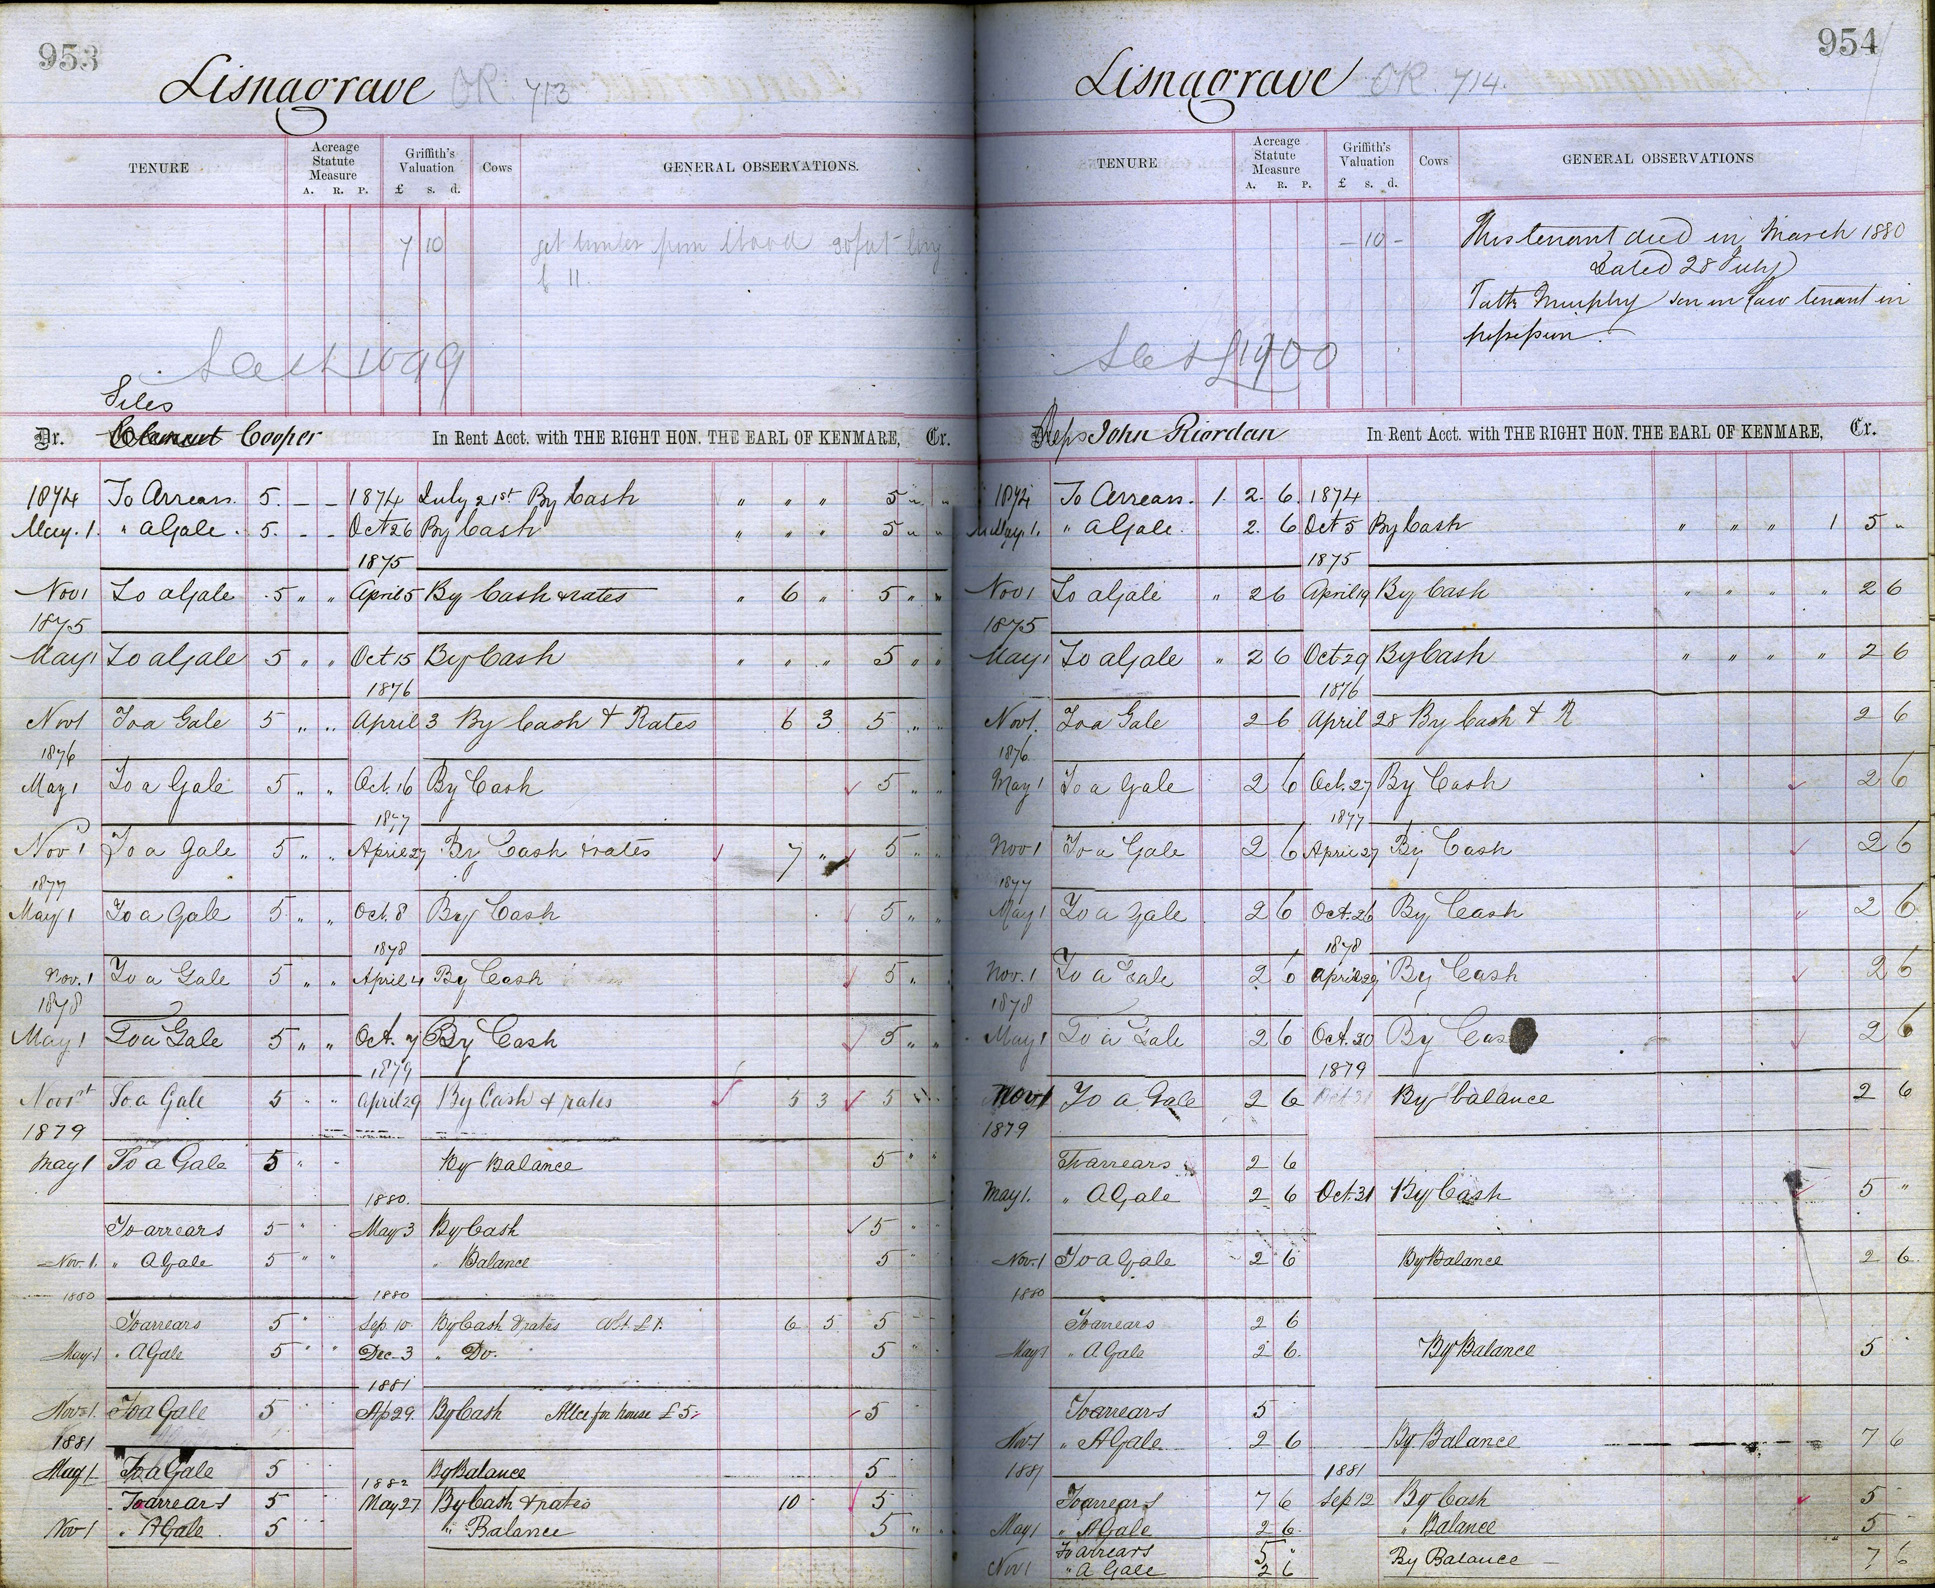 953
Lisnagrave OR. 713
TENURE
Acreage Statute Measure
A. R. P.
Griffith's Valuation
£ s. d.
Cows
GENERAL OBSERVATIONS.
7 10
get timber from Wood 30 feet long
Giles
Cooper In Rent Acct. with THE RIGHT HON. THE EARL OF KENMARE,
Dr. Cr.
1874 To Arrears. 5. - - 1874 July 21st By Cash " " " 5 " "
May. 1. " a Gale. 5. - - Oct 26 By Cash " " " 5 " "
1875
Nov 1 To a Gale 5 " " April 5 By Cash & rates " 6 " 5 " "
1875
May 1 To a Gale 5 " " Oct 15 By Cash " " " 5 " "
1876
Nov 1 To a Gale 5 " " April 3 By Cash & Rates 6 3 5 " "
1876
May 1 To a Gale 5 " " Oct. 16 By Cash 5 " "
1877
Nov 1 To a Gale 5 " " April 27 By Cash & rates 7 " 5 " "
1877
May 1 To a Gale 5 " " Oct. 8 By Cash 5 " "
1878
Nov. 1 To a Gale 5 " " April 4 By Cash 5 "
1878
May 1 To a Gale 5 " " Oct. 7 By Cash 5 " "
1879
Nov 1st To a Gale 5 " " April 29 By Cash & rates 5 3 5 " "
1879
May 1 To a Gale 5 " " By Balance 5 " "
1880.
To arrears 5 " " May 3 By Cash 5 " "
Nov. 1. " A Gale 5 " " " Balance 5 " "
1880 1880
To arrears 5 " Sep. 10 By Cash & rates 6 5 5
May 1 " A Gale 5 " " Dec. 3 " Do. 5
1881
Nov. 1. To a Gale 5 Ap 29. By Cash Allce for house £5 5
1881
May 1 To a Gale 5 By Balance 5
1882
To arrears 5 May 27 By Cash & rates 10 5
Nov 1 " A Gale 5 " Balance 5 " "
954
Lisnagrave OR. 714.
TENURE
Acreage Statute Measure
A. R. P.
Griffith's Valuation
£ s. d.
Cows
GENERAL OBSERVATIONS
- 10 - This tenant died in March 1880
Dated 28 July
Murphy son in law tenant in
possession.
Reps John Riordan In Rent Acct. with THE RIGHT HON. THE EARL OF KENMARE, Cr.
1874 To Arrears. 1. 2. 6. 1874
May. 1. " a Gale. 2. 6 Oct 5 By Cash " " " 1 5 "
1875
Nov 1 To a Gale " 2 6 April 19 By Cash " " " " 2 6
1875
May 1 To a Gale " 2 6 Oct 29 By Cash " " " " 2 6
1876
Nov 1. To a Gale 2 6 April 28 By Cash & R 2 6
1876
May 1 To a Gale 2 6 Oct. 27 By Cash 2 6
1877
Nov 1 To a Gale 2 6 April 27 By Cash 2 6
1877
May 1 To a Gale 2 6 Oct. 26 By Cash 2 6
1878
Nov. 1 To a Gale 2 6 April 29 By Cash 2 6
1878
May 1 To a Gale 2 6 Oct. 30 By Cas 2 6
1879
Nov 1 To a Gale 2 6 Oct 31 By balance 2 6
1879
To arrears 2 6
May 1. " A Gale 2 6 Oct. 31 By Cash 5 "
Nov. 1 To a Gale 2 6 By Balance 2 6
1880
To arrears 2 6
May 1 " A Gale 2 6. By Balance 5
To arrears 5
Nov 1 " A Gale 2 6 By Balance 7 6
1881 1881
To arrears 7 6 Sep 12 By Cash 5
May 1 " A Gale 2 6. " Balance 5
To arrears 5 "
Nov 1 " A Gale 2 6 By Balance 7 6